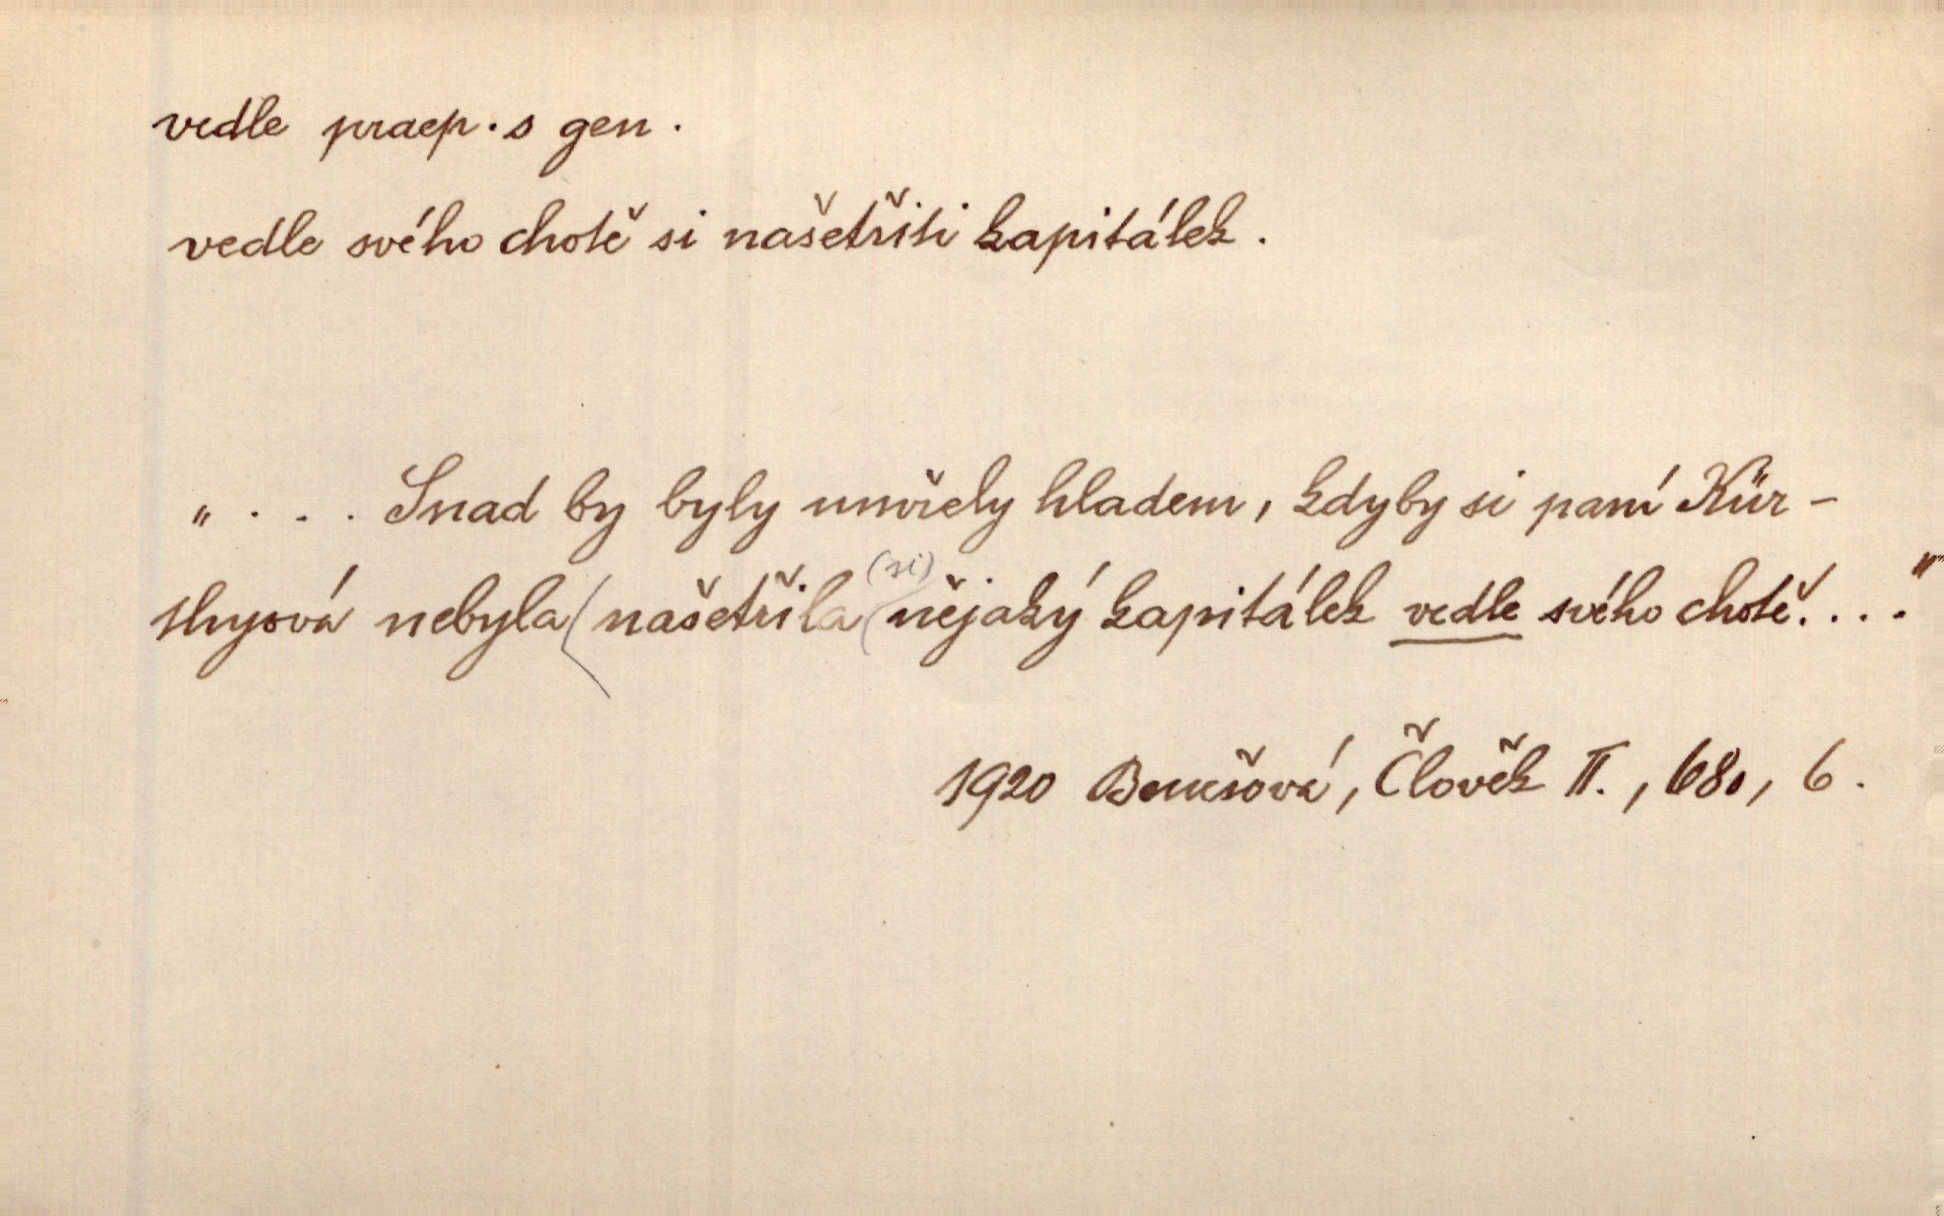 vedle praep. s gen.
vedle svého chotě si našetřiti kapitálek.
„ . . . Snad by byly umřely hladem, kdyby si paní Kür-
nebyla ( našetřila (si) ( nějaký kapitálek vedle svého chotě. . . ."
1920 Benešová, Člověk II., 680, 6.